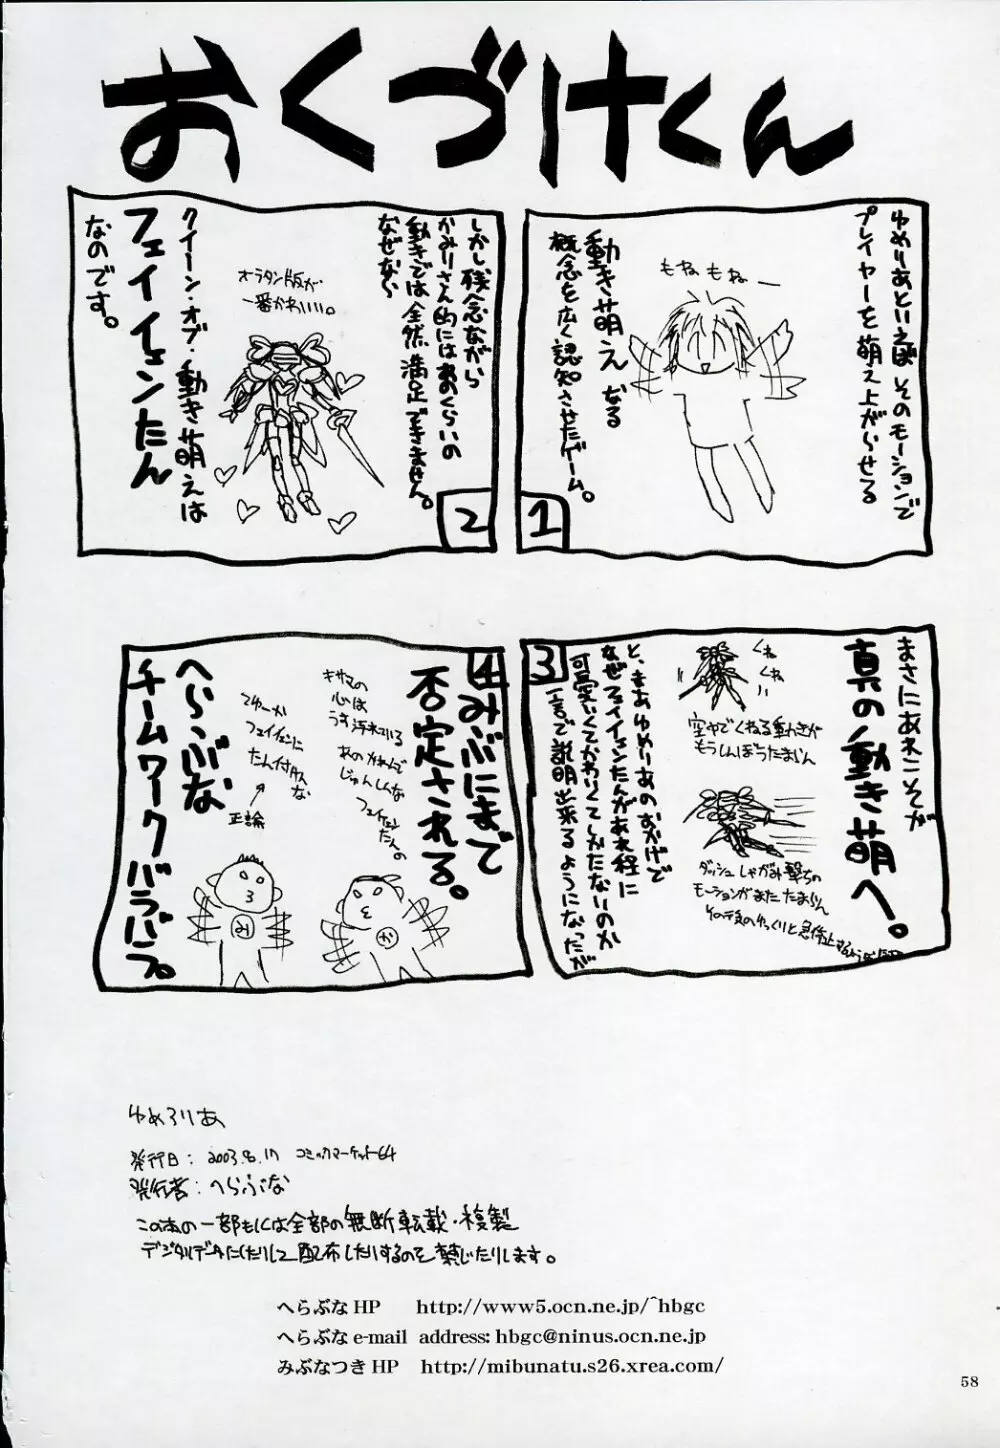 おくづけくん
ゆめりあといえば そのモーションで
プレイヤーを萌え上がらせる
もね もね ー
動き萌えなる
概念を広く認知させたゲーム。
1
しかし残念ながら
かみりさん的にはおくらいの
動きでは全然、満足できません。
なぜなら
オラタン版が
一番かわいい。
クイーン・オブ・動き萌えは
フェイイェンたん
なのです。
2
まさにあれこそが
真の動き萌へ。
くね
くね
空中でくねる動きが
もうしんぼうたまらん
ダッシュしゃがみ撃ちの
モーションがまたたまらん
そのテ員のゆっくりと急停止する
と、まあゆめりあのおかげで
なぜフェイイェンたんがあれ程に
可愛いくてかわいくてしかたないのか
一言で説明出来るようになったが
3
みぶにまで
否定される。
キサマの
心は
うす汚れている
あのかれんで
じゅんしんな
フェイイェン
たんの
てゆーか
フェイイェンに
たん付けスな
正論
へらぶな
チームワークバラバラ。
み
か
4
ゆめろりあ
発行日：2003.8.17 コミックマーケット64
発行者：へらぶな
この本の一部もしくは全部の無断転載・複製
デジタルデータにしたりして配布したりするのを禁じたりします。
へらぶな HP http://www5.ocn.ne.jp/~hbgc
へらぶな e-mail address: hbgc@ninus.ocn.ne.jp
みぶなつき HP http://mibunatu.s26.xrea.com/
58